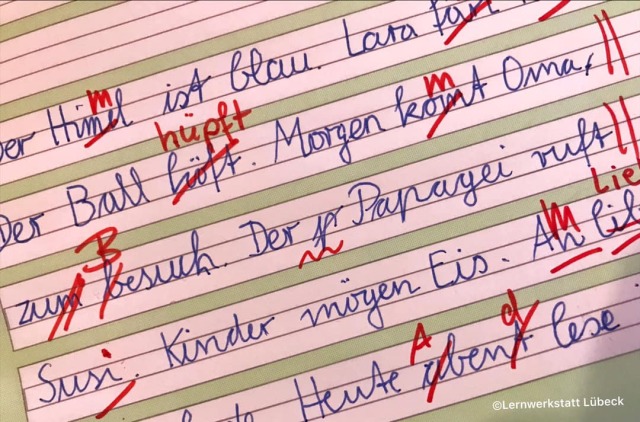 er Himel ist blau. Lara
m
hüpft
m
Der Ball höft. Morgen komt Oma,
B
zum besuch. Der Papagei ruft
M Lie
Susi. Kinder mögen Eis. An
A d
Heute abent lese
©Lernwerkstatt Lübeck